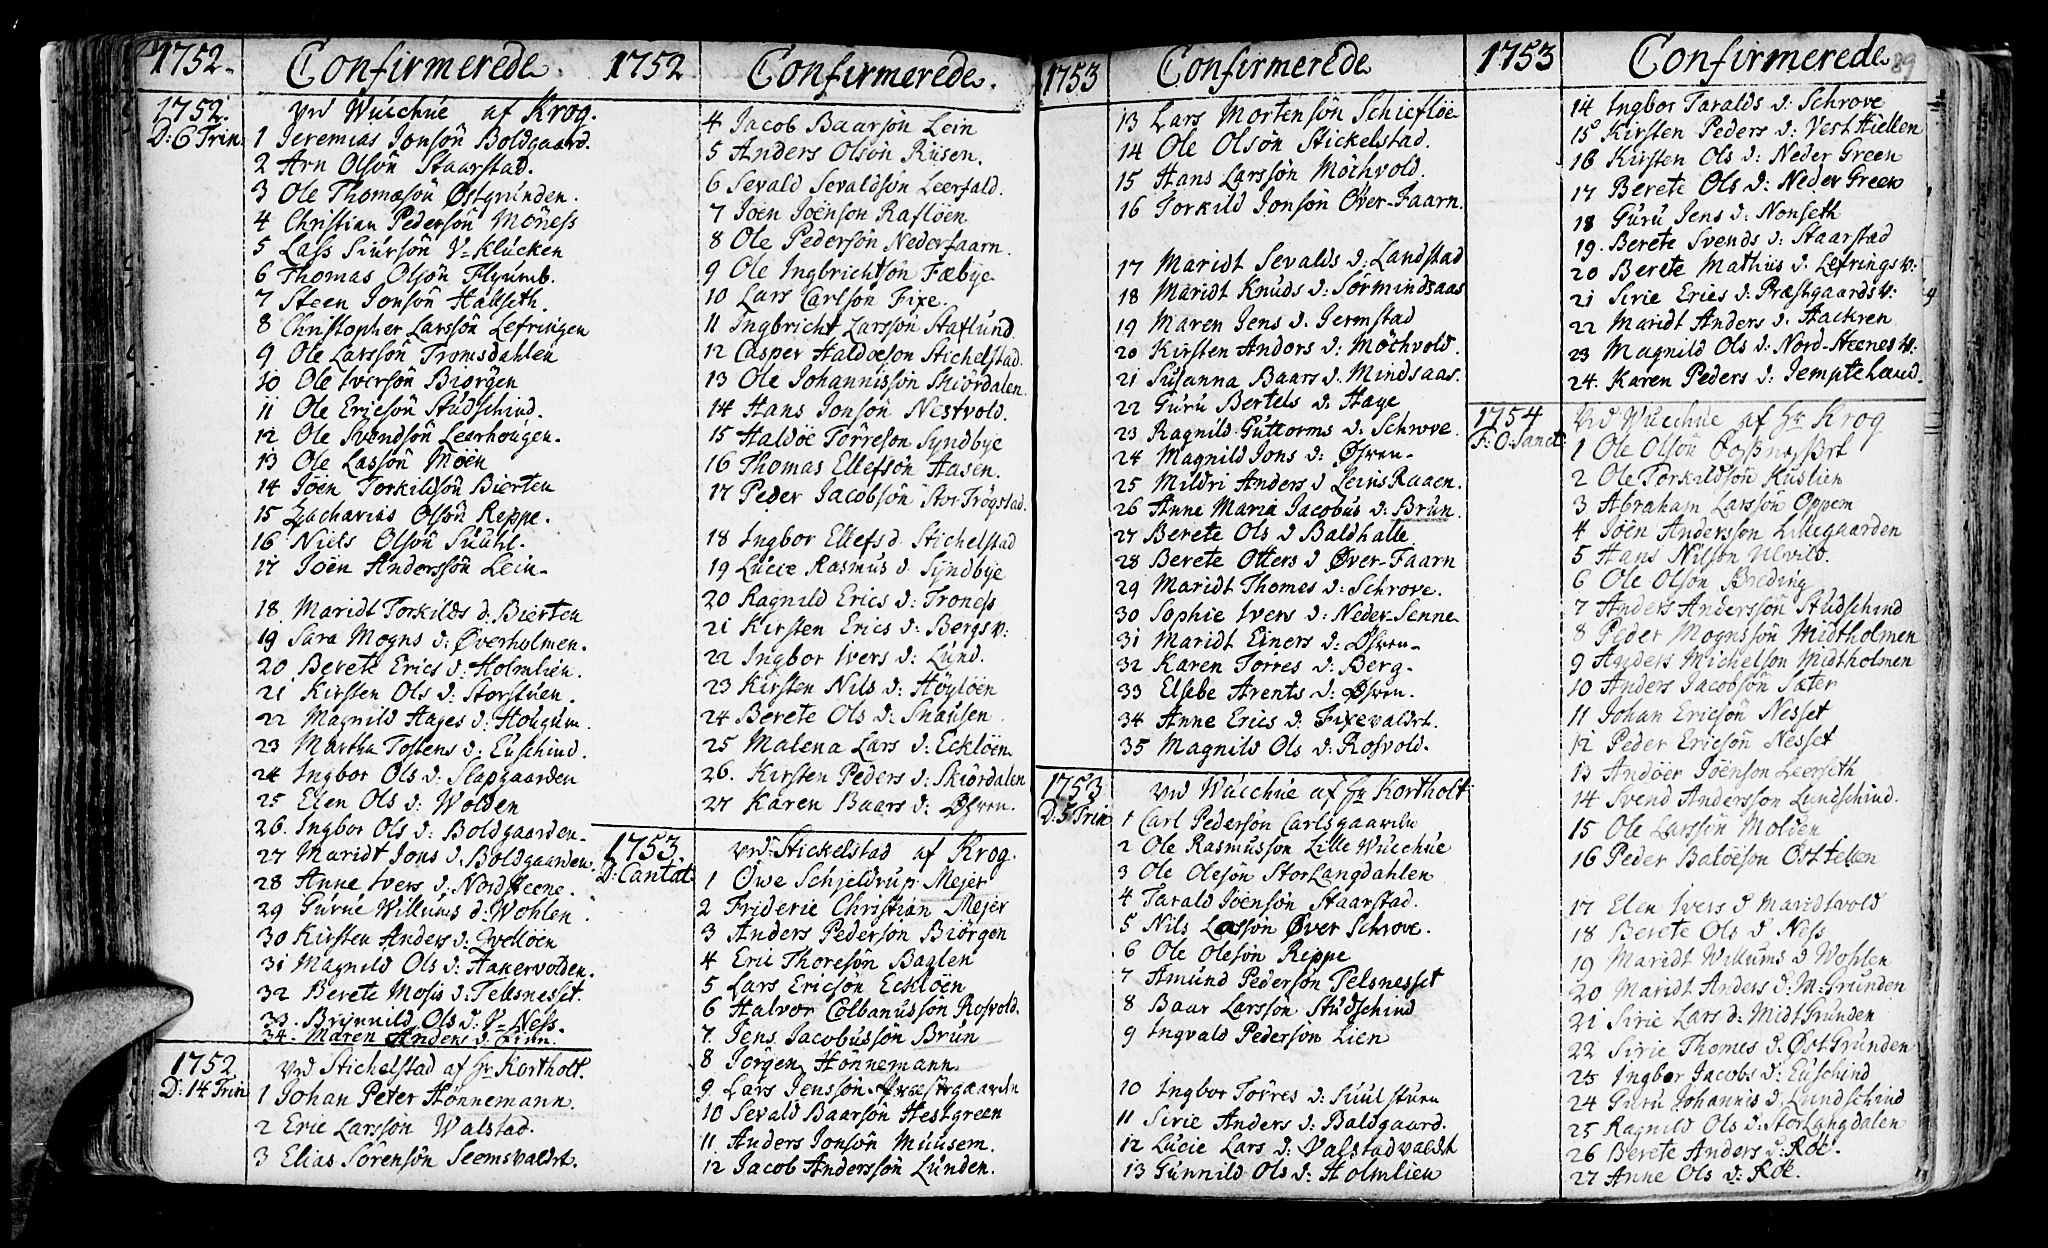 1752. Confirmerede.
1752. D: 6 Trin. vid Wucchue af Krog.
1 Jeremias Jonsön Boldgaard.
2 Arn Olsön Staarstad.
3 Ole Thomæsön Østgrunden.
4 Christian Pedersön Möness
5 Lass Siursön V-Klucken
6 Thomas Olsön Flyumb.
7 Steen Jonsön Halseth.
8 Christopher Larssön Lefringen
9 Ole Larssön Tromsdahlen
10 Ole Iversön Biörgen
11 Ole Ericsön Studschind.
12 Ole Svendsön Leerhougen.
13 Ole Lassön Möen
14 Jöen Torkildsön Bierten
15 Zacharias Olsön Reppe.
16 Niels Olsön Suuhl.
17 Jöen Anderssön Lein.
18. Maridt Torkilds d: Bierten
19 Sara Mogns d: Øverholmen.
20 Berete Erics d: Holmlien.
21 Kirsten Ols d: Storstuen.
22 Magnild Hages d: Hougum.
23 Martha Tostens d: Euschind.
24 Ingbor Ols d: Slapgaarden
25 Elen Ols d: Wolden
26. Ingbor Ols d: Boldgaarden
27 Maridt Jons d: Boldgaarden.
28 Anne Ivers d: Nord Steene.
29 Gurue Willums d: Wohlen
30 Kirsten Anders d: Tvellöen
31 Magnild Ols d: Aakervolden.
32 Berete Mosis d: Tellsnesset.
33. Brynnild Ols d: V-Ness.
34. Maren Anders d:
1752 D: 14 Trin vid Stichelstad af Hr Kortholt.
1 Johan Peter Hönnemann.
2 Eric Larssön Walstad.
3 Elias Sörensön Seemsvaldet.
1752 Confirmerede.
4 Jacob Baarsön Lein
5 Anders Olsön Riisen.
6 Sevald Sevaldsön Leerfald.
7 Joen Joënson Raflöen
8 Ole Pedersön Nederfaarn.
9 Ole Ingbrichtsön Fæbye
10 Lars Carlsön Fixe.
11 Ingbricht Larssön Staflund
12 Casper Haldoeson Stichelstad.
13 Ole Johannissön Skiördalen.
14 Hans Jonsön Nestvold.
15 Haldöe Törreson Syndbye
16 Thomas Ellefsön Aasen.
17 Peder Jacobsön Stor Trögstad.
18 Ingbor Ellefs d. Stichelstad
19 Lucie Rasmus d. Syndbye
20 Ragnild Erics d: Troness
21 Kirsten Erics d: Bergs v:
22 Ingbor Ivers d: Lund.
23 Kirsten Nils d: Höylöen
24 Berete Ols d: Snausen
25 Malena Lars d: Ecklöen
26. Kirsten Peders d: Skiördalen
27 Karen Baars d: Øsven.
1753. D: Cantat vid Stickelstad af Krog.
1 Owe Schjeldrup Mejer
2 Frideric Christian Mejer
3 Anders Pederson Biörgen
4 Eric Thoresön Baglen
5 Lars Ericsön Ecklöen
6 Halvor Colbanussön Rosvold.
7. Jens Jacobussön Brun
8 Jörgen Hönnemann
9 Lars Jenssön Præstegaarden
10 Sevald Baarsön Hestgreen
11. Anders Jonsön Muusem.
12 Jacob Anderssön Lunden.
1753 Confirmerede
13 Lars Mortensön Schieflöe
14 Ole Olsön Stickelstad.
15 Hans Larssön Möchvold.
16 Torkild Jonsön Över-Faarn.
17 Maridt Sevalds d: Landstad
18 Maridt Knuds d: Sörmindsaas
19 Maren Jens d. Jermstad
20 Kirsten Anders d: Möchvold.
21 Susanna Baars d: Mindsaas.
22 Guru Bertels d: Hage
23 Ragnild Guttorms d: Schrove
24 Magnild Jons d: Øsven
25 Mildri Anders d: Leins Raaen.
26 Anne Maria Jacobus d: Brun.
27 Berete Ols d Baldhalle
28 Berete Otters d Øver-Faarn
29 Maridt Thomes d: Schrove.
30 Sophie Ivers d: Neder-Jenne
31 Maridt Einers d: Øsven
32 Karen Törres d: Berg.
33 Elsebe Arents d: Øsven.
34 Anne Erics d: Fixevaldet.
35 Magnild Ols d: Rosvold.
1753 D: 5 Trin vid Wucchue af Hr Kortholt
1 Carl Pedersön Carlsgaarden
2 Ole Rasmusson Lille Wucchue
3 Ole Olesön Stor Langdahlen
4 Tarald Jöenson Staarstad.
5 Nils Lassön Øver Schrove.
6 Ole Olesön Reppe
7 Amund Pederson Telsnesset
8 Baar Larssön Studschind
9 Ingvald Pederson Lien
10 Ingbor Törres d: Suul stuen
11 Sirie Anders d: Baldgaard.
12 Lucie Lars d: Valstadvaldet
13 Gunnild Ols d: Holmlien
1753 Confirmerede 89
14 Ingbor Taralds d: Schrove
15 Kirsten Peders d: Vest Hiellen
16 Kirsten Ols d: Neder Green
17 Berete Ols d: Neder Green
18 Guru Jens d: Nonseth
19. Berete Svends d: Staarstad
20 Berete Mathiis d: Lefrings v:
21 Sirie Erics d: Præstgaards v:
22 Maridt Anders d: Aackren
23 Magnild Ols d: Nord-Steenes v:
24. Karen Peders d: Jempteland.
1754 F: O: Sanct: vid Wucchue af Hr Krog
1 Ole Olsön
2 Ole Torkildsön Kuslien
3 Abraham Larssön Oppem
4 Jöen Andersson Lillegaarden
5 Hans Nilson Ulvild.
6 Ole Olson Breding
7 Anders Anderssön Studschind
8 Peder Mognssön Midtholmen
9 Anders Michelson Midtholmen
10 Anders Jacobsön Sæter
11 Johan Ericsön Nesset
12 Peder Ericsön Nesset
13 Andöer Jöenson Leerseth
14 Svend Andersson Lundschind.
15 Ole Larssön Molden
16 Peder Baldeson Øst Tellen
17 Elen Ivers d Maridtvold
18 Berete Ols d Ness
19 Maridt Willums d Wohlen
20 Maridt Anders d: M: Grunden
21 Sirie Lars d: Midt Grunden
22 Sirie Thomes d: Øst Grunden
23 Ingbor Jacobs d: Euschind
24 Guru Johannis d: Lundschind
25 Ragnild Ols d: Stor Langdalen
26 Berete Anders d: Röe.
27 Anne Ols d: Röe.